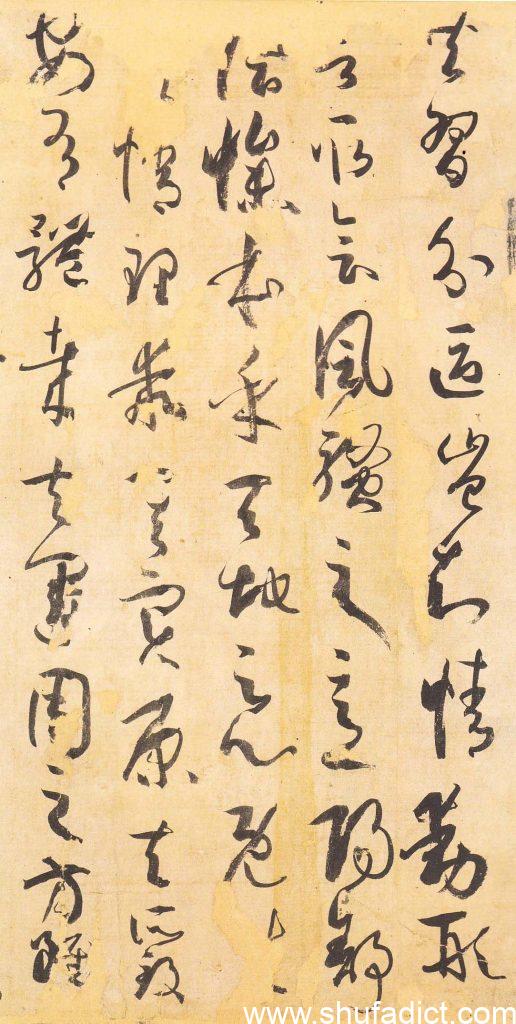 共習分區豈知情動形
言取會風騷之意陽舒
陰慘本乎天地之心既
情理乖其實原夫所致
安有體哉夫運用之方雖
www.shufadict.com